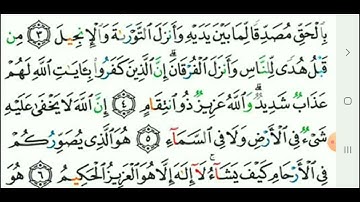 بِالْحَقِّ مُصَدِّقًا لِّمَا بَيْنَ يَدَيْهِ وَأَنزَلَ التَّوْرَىٰةَ وَالْإِنجِيلَ ٣ مِن
قَبْلُ هُدًى لِّلنَّاسِ وَأَنزَلَ الْفُرْقَانَ ۗ إِنَّ الَّذِينَ كَفَرُوا بِـَٔايَٰتِ اللَّهِ لَهُمْ
عَذَابٌ شَدِيدٌ ۗ وَاللَّهُ عَزِيزٌ ذُو انتِقَامٍ ٤ إِنَّ اللَّهَ لَا يَخْفَىٰ عَلَيْهِ
شَىْءٌ فِى الْأَرْضِ وَلَا فِى السَّمَآءِ ٥ هُوَ الَّذِى يُصَوِّرُكُمْ
فِى الْأَرْحَامِ كَيْفَ يَشَآءُ ۚ لَآ إِلَٰهَ إِلَّا هُوَ الْعَزِيزُ الْحَكِيمُ ٦ هُوَ